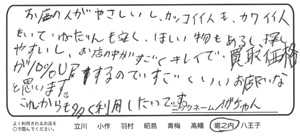 お店の人がやさしいし、カッコイイ人も、カワイイ人
もいていかたんも安く、ほしい物もあるし、探し
やすいし、お店の中がすごくキレイで、買取価格
が10%UPするのですごくいいお店だな
と思います。
これからも多く利用したいです。
よく利用されるお店を
○で囲んでください。
立川 小作 羽村 昭島 青梅 高幡 堀之内 八王子